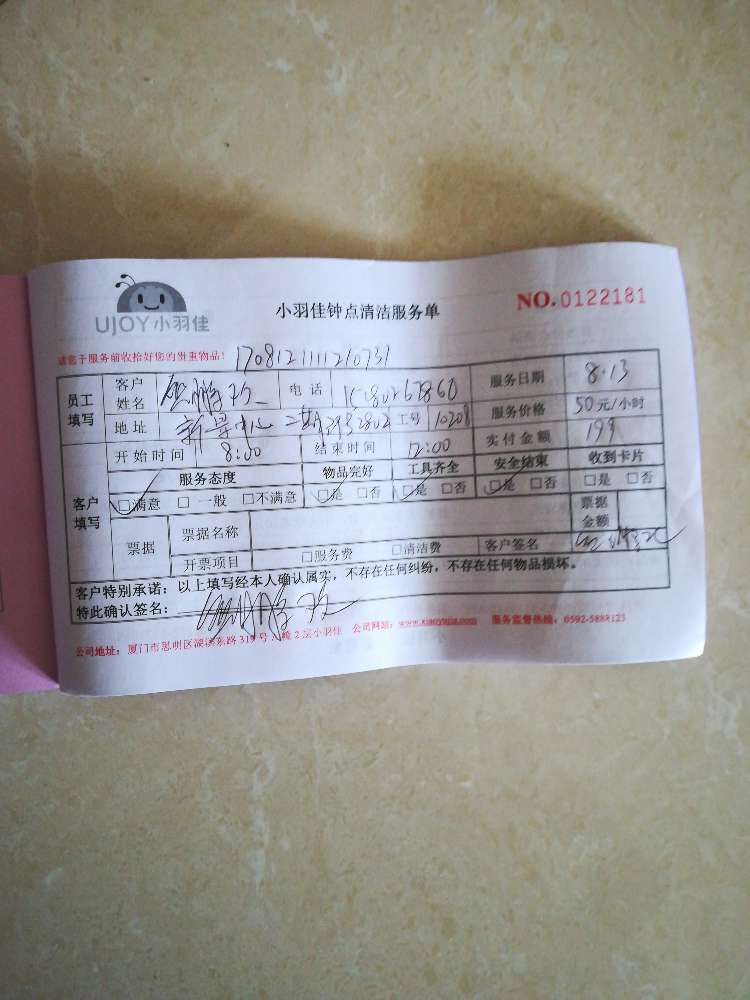 UJOY小羽佳
小羽佳钟点清洁服务单
NO.0122181
请您于服务前收拾好您的贵重物品! 170812111210731
员工填写 客户姓名 电话 服务日期 8.13
地址 新景中心 工号 10208 服务价格 50元/小时
开始时间 8:00 结束时间 12:00 实付金额 199
客户填写 服务态度 物品完好 工具齐全 安全结束 收到卡片
□满意 □一般 □不满意 □是 □否 □是 □否 □是 □否 □是 □否
票据 票据名称 票据金额
开票项目 □服务费 □清洁费 客户签名
客户特别承诺:以上填写经本人确认属实,不存在任何纠纷,不存在任何物品损坏。
特此确认签名:
公司地址:厦门市思明区 东路319号 2层小羽佳 公司网站: 服务监督热线:0592-5888123